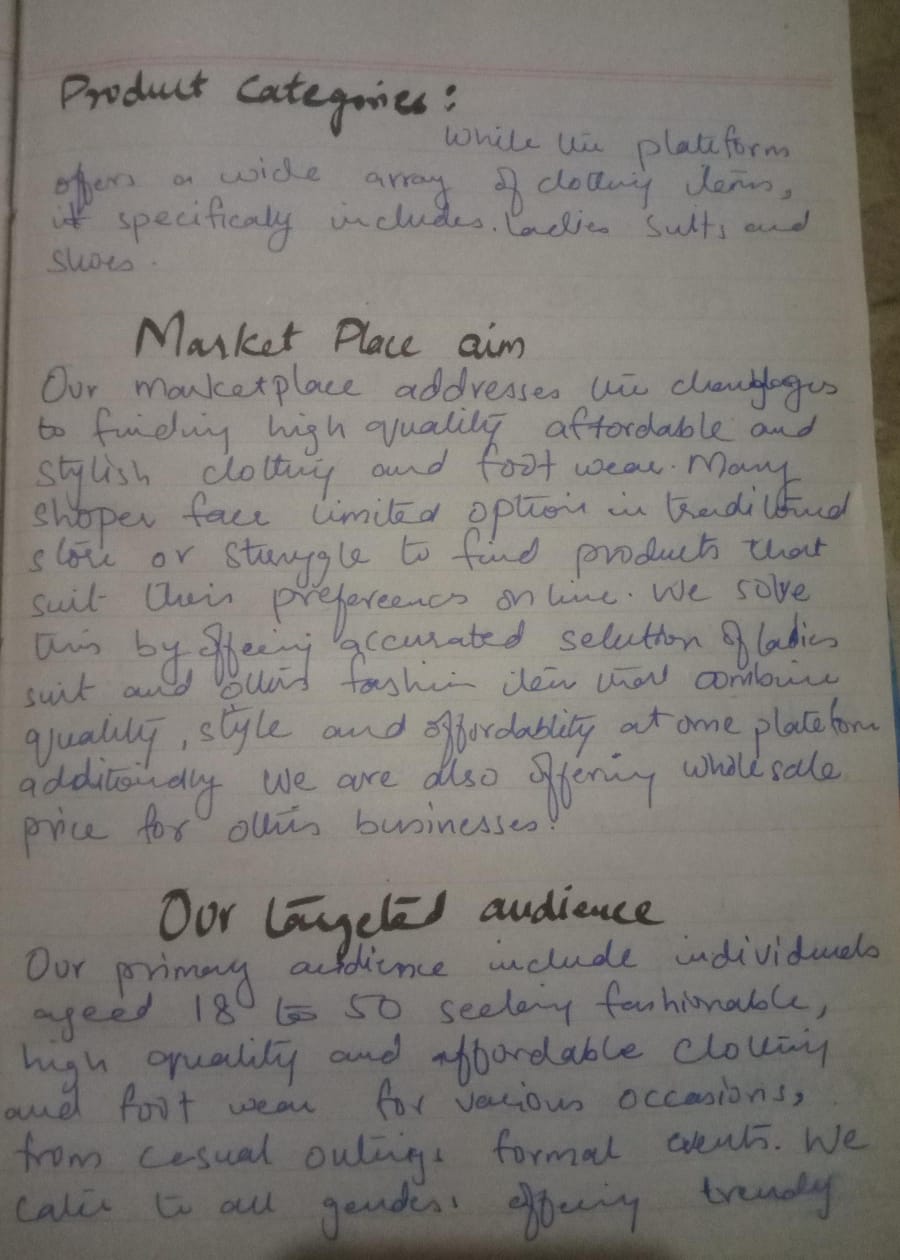 Product Categories:
While the plateform
offers a wide array of clothing items,
it specificaly includes. Ladies suits and
shoes.
Market Place aim
Our marketplace addresses the
to finding high quality affordable and
stylish clothing and foot wear. Many
shoper face limited option in traditional
store or struggle to find products that
suit their prefereences online. We solve
this by offeing accurated selection of ladies
suit and others fashion item that combine
quality, style and affordablity at one plateform
additionally we are also offering wholesale
price for others businesses.
Our targeted audience
Our primary audience include individuals
ageed 18 to 50 seeking fashionable,
high quality and affordable clothing
and foot wear for various occasions,
from casual outings formal events. We
cater to all genders, offeing trendy